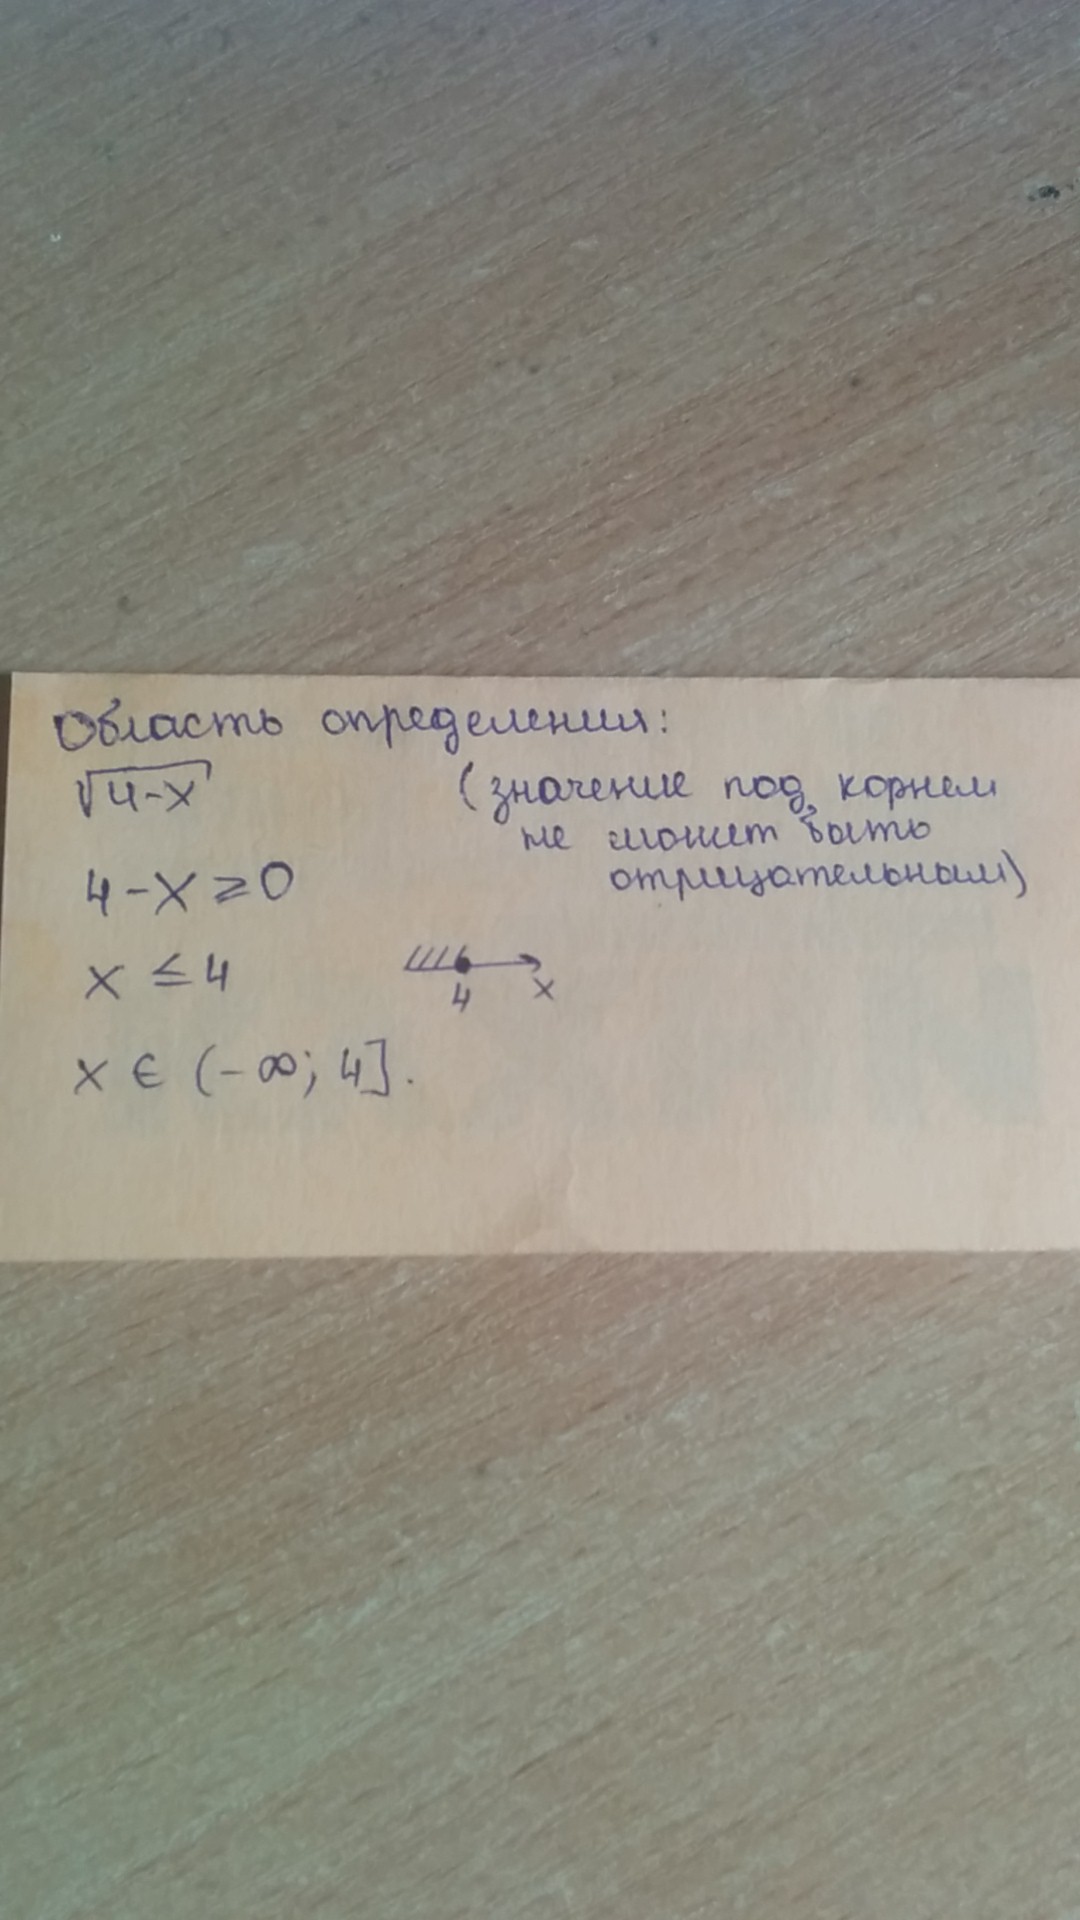 Область определения:
√4-x (значение под корнем
не может быть
отрицательным)
4-x ≥ 0
x ≤ 4
4 x
x ∈ (-∞; 4].